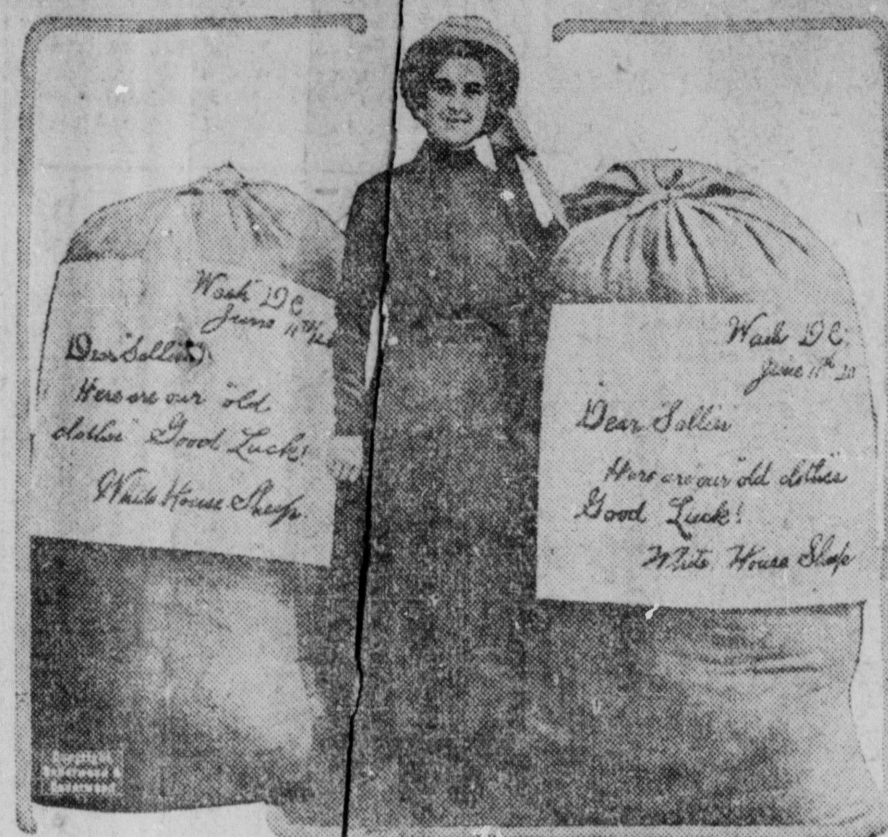 Wash D C
June 11th
Dear "Sallies"
Here are our "old
clothes" Good Luck!
White House Sheep.
Wash D C.
June 11th 20
Dear "Sallies"
Here are our "old clothes"
Good Luck!
White House Sheep
Copyright
Underwood &
Underwood